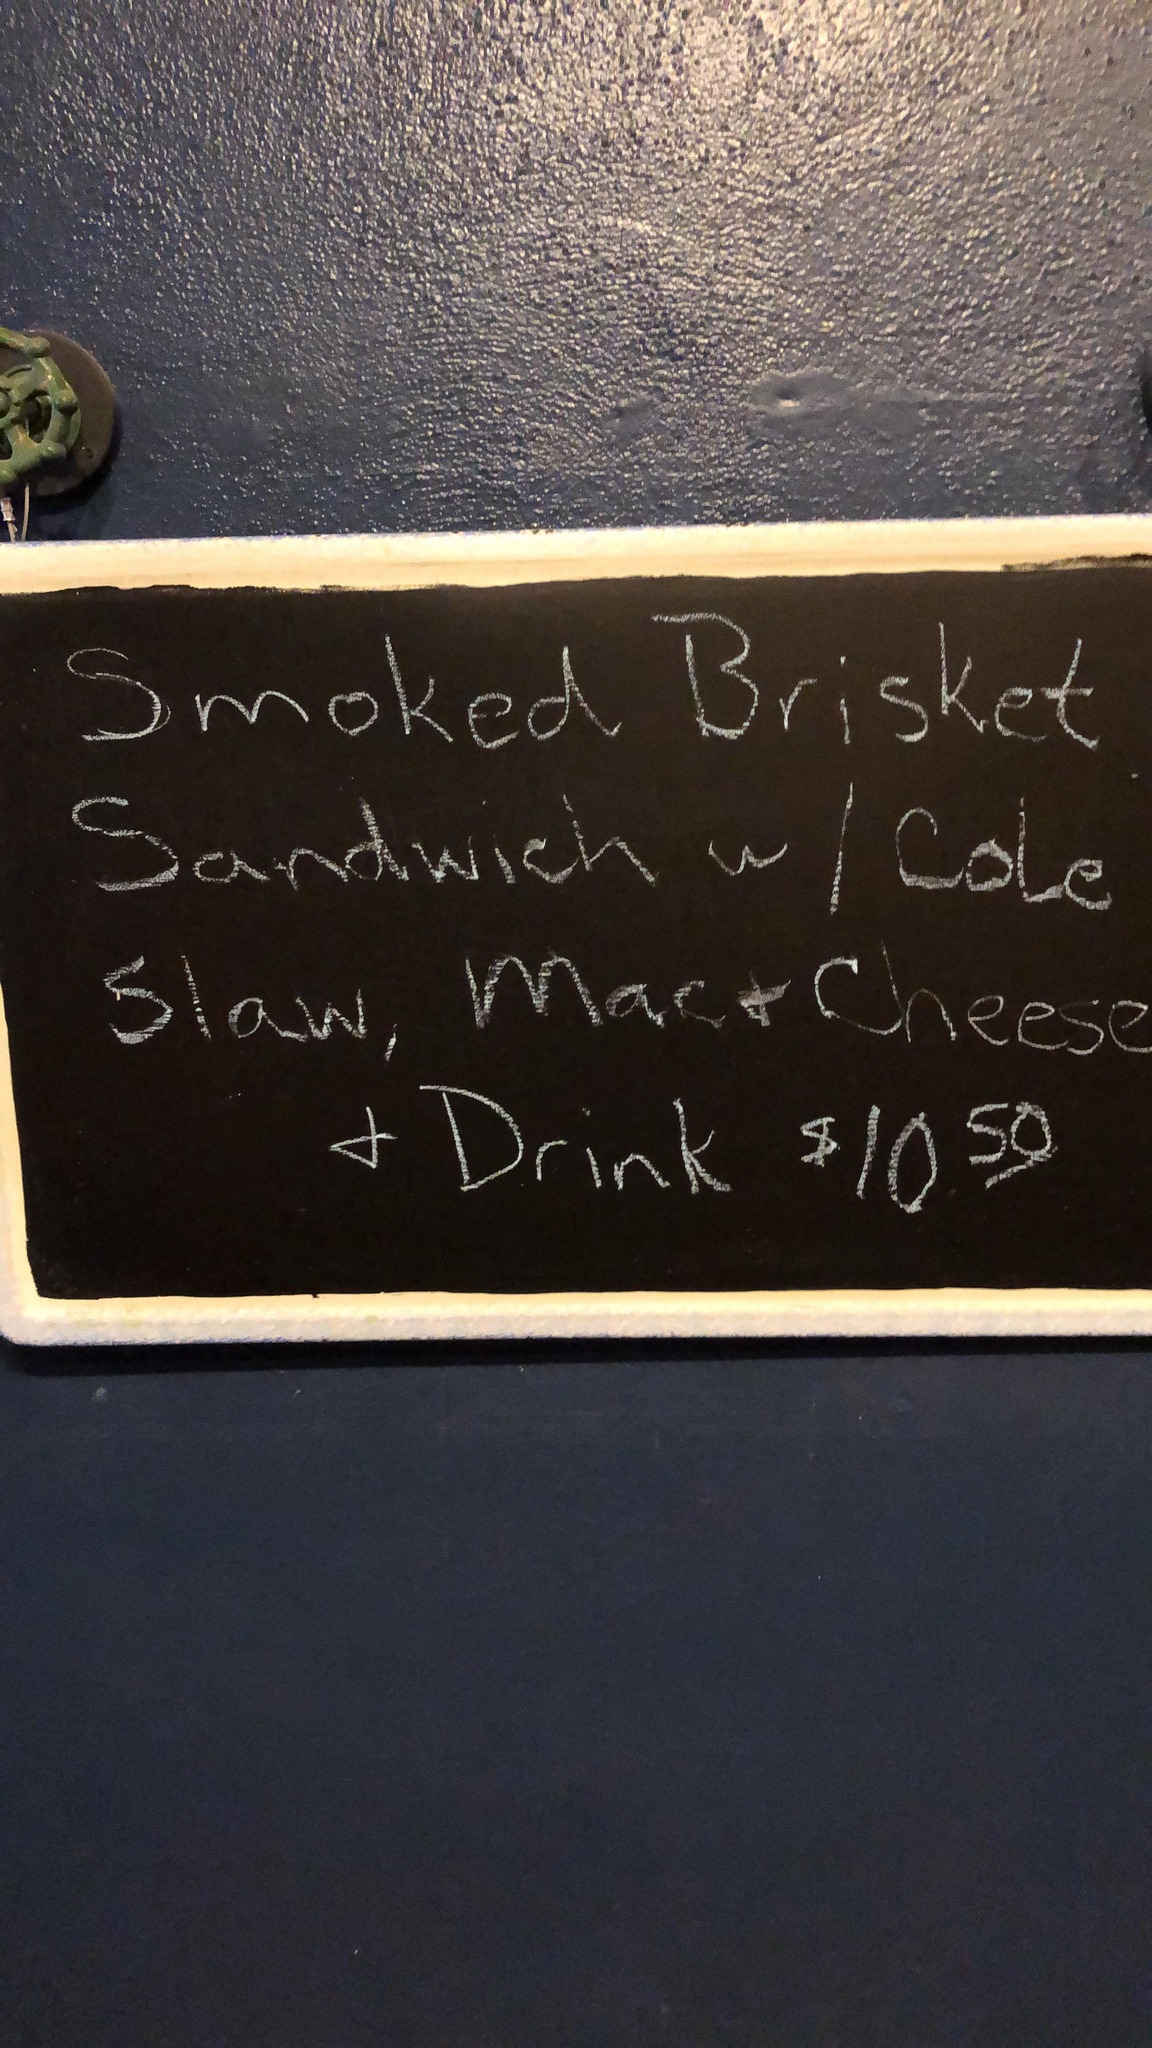 Smoked Brisket
Sandwich w/ Cole
Slaw, Mac + Cheese
+ Drink $10 50